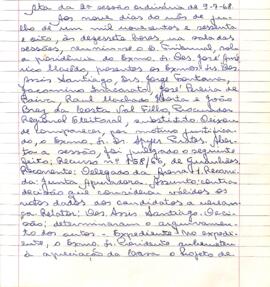 Ata da 2ª sessão ordinária de 9-7-68.
Aos nove dias do mês de ju-
lho de um mil novecentos e sessenta
e oito, às dezessete horas, na sala das
sessões, reuniu-se o E. Tribunal, sob
a presidência do Exmo. Sr. Des. José Amé-
rico Macedo, presentes os Exmos. Srs. Des.
Assis Santiago, Drs. Jorge Fontana,
Jacomino Inacarato, José Pereira de
Paiva, Raul Machado Horta e João
Braz da Costa Val Filho, Procurador
Regional Eleitoral, substituto. Deixou
de comparecer, por motivo justifica-
do, o Exmo. Sr. Dr. Ayres Aber-
ta a sessão, foi julgado o seguinte
feito: Recurso nº 758/66, de Guanhães
Recorrente: Delegado da Arena. Recorri-
da: Junta Apuradora. Assunto: contra
decisão que considerou válidos os
votos dados aos candidatos a verean-
ça. Relator: Des. Assis Santiago. Deci-
são: determinaram o arquivamen-
to dos autos. - Expediente - No expedi-
ente, o Exmo. Sr. Presidente submeteu
à apreciação da Casa o Projeto de